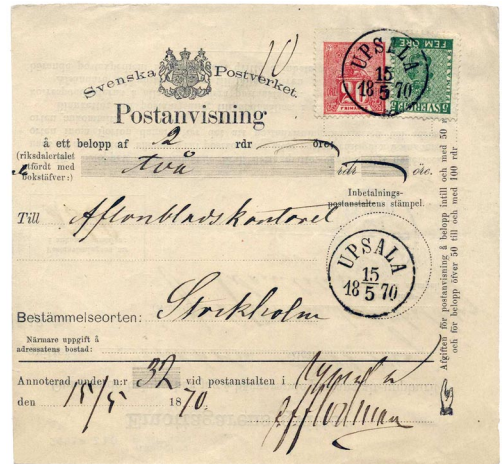 10
Svenska Postverket.
Postanvisning
å ett belopp af 2 rdr öre
(riksdalertalet
utfördt med
bokstäfver:) två rdr öre.
Inbetalnings-
postanstaltens stämpel.
Till Aftonbladskontoret
Bestämmelseorten: Stockholm
Närmare uppgift å
adressatens bostad:
Annoterad under n:r 32 vid postanstalten i Upsala
den 15/5 1870.
UPSALA
15
5
18 70
UPSALA
15
5
18 70
FEM ÖRE
Afgiften för postanvisning å belopp intill och med 50 r
och för belopp öfver 50 till och med 100 rdr